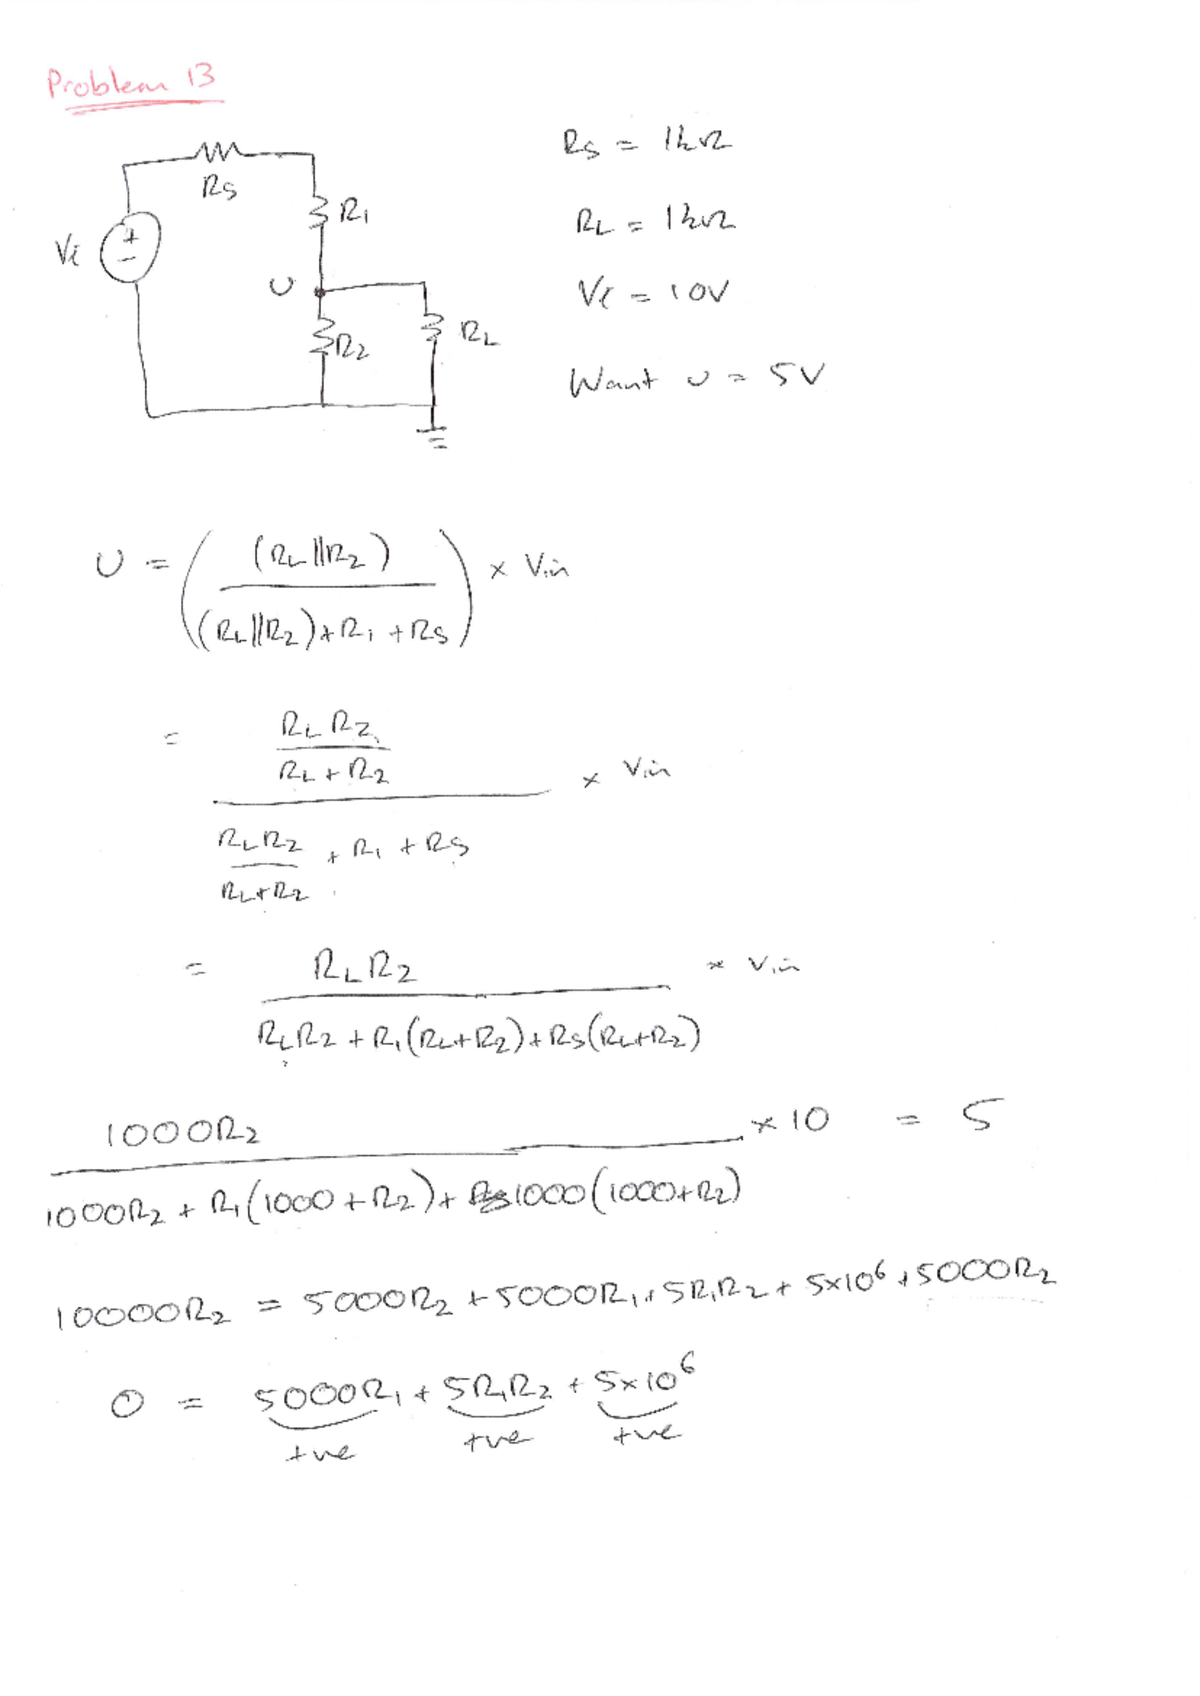 Problem 13
Rs
R1
Vi
+
−
U
R2
RL
Rs = 1kΩ
RL = 1kΩ
Vi = 10V
Want U = 5V
U = ( (RL||R2) / ((RL||R2) + R1 + Rs) ) × Vin
= (RL R2 / (RL + R2)) / (RL R2 / (RL + R2) + R1 + Rs) × Vin
= RL R2 / (RL R2 + R1(RL + R2) + Rs(RL + R2)) × Vin
1000R2 / (1000R2 + R1(1000 + R2) + 1000(1000 + R2)) × 10 = 5
10000R2 = 5000R2 + 5000R1 + 5R1R2 + 5×10⁶ + 5000R2
0 = 5000R1 + 5R1R2 + 5×10⁶
+ve +ve +ve